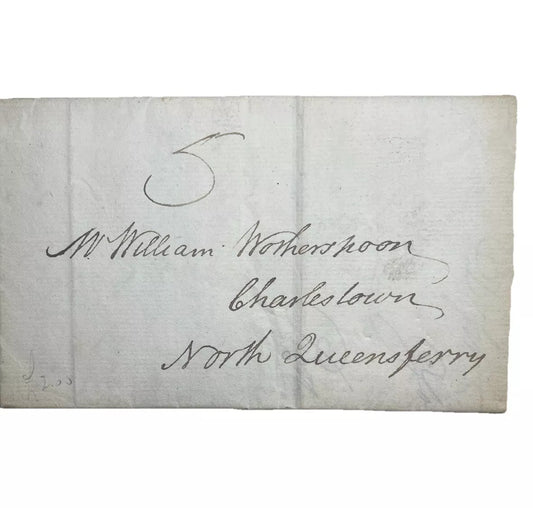 5
Mr William Wotherspoon
Charlestown
North Queensferry
£2.00